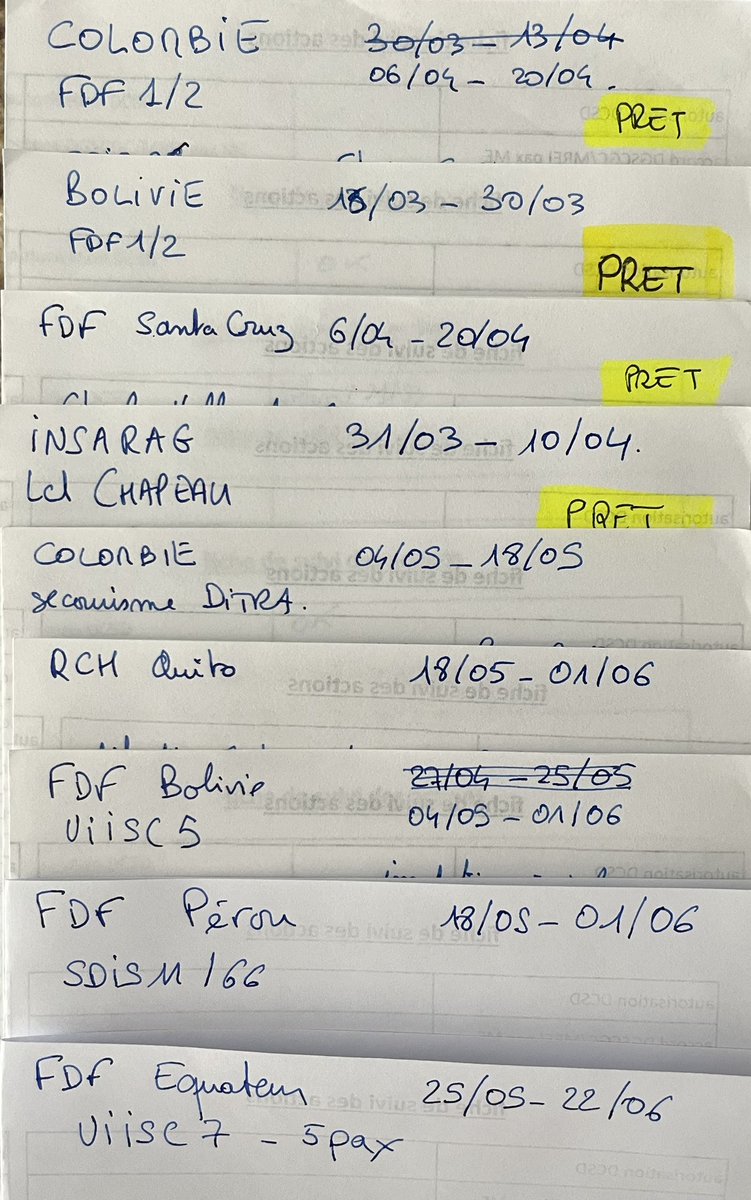 COLOMBIE 30/03 - 13/04
06/04 - 20/04.
FDF 1/2
PRET
BOLIVIE 16/03 - 30/03
FDF 1/2
PRET
FDF Santa Cruz 6/04 - 20/04
PRET
INSARAG 31/03 - 10/04.
Lcl CHAPEAU
PRET
COLOMBIE 04/05 - 18/05
secourisme DITRA.
RCH Quito 18/05 - 01/06
FDF Bolivie 27/04 - 25/05
UIISC 5 04/05 - 01/06
FDF Pérou 18/05 - 01/06
SDIS 11 / 66
FDF Equateur 25/05 - 22/06
UIISC 7 - 5 pax